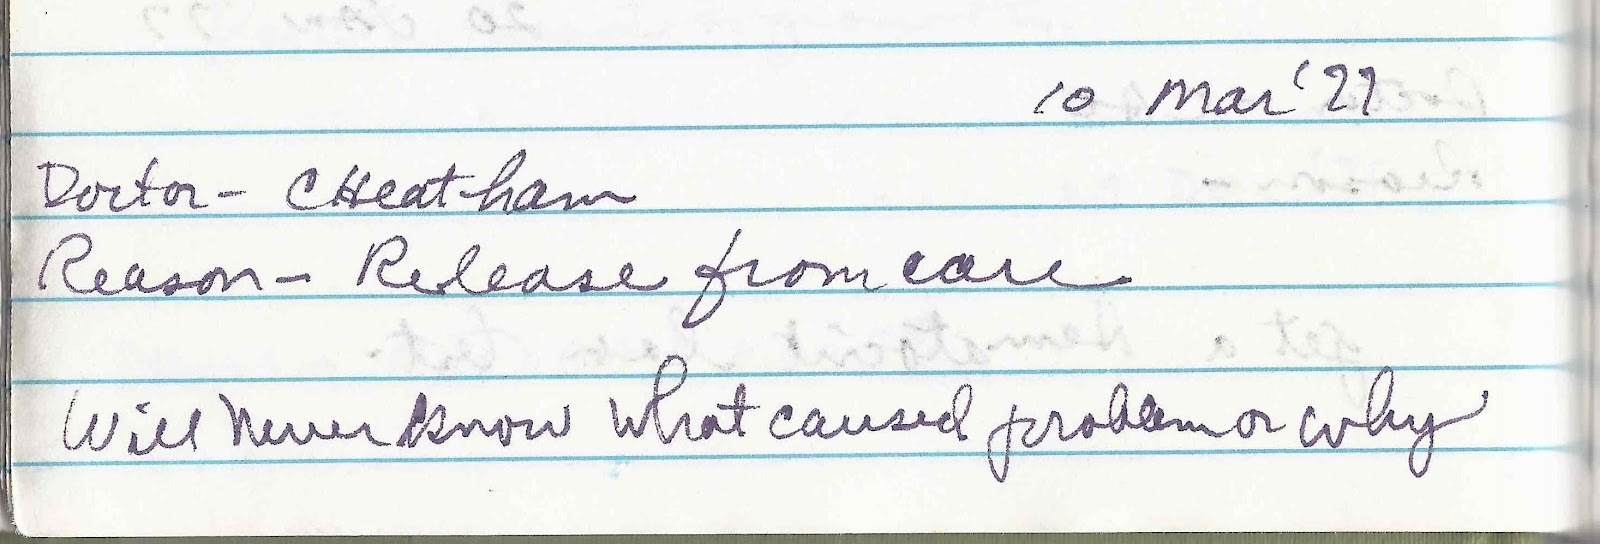 10 Mar '77
Doctor - CHeatham
Reason - Release from care
Will Never Know What caused problem or why